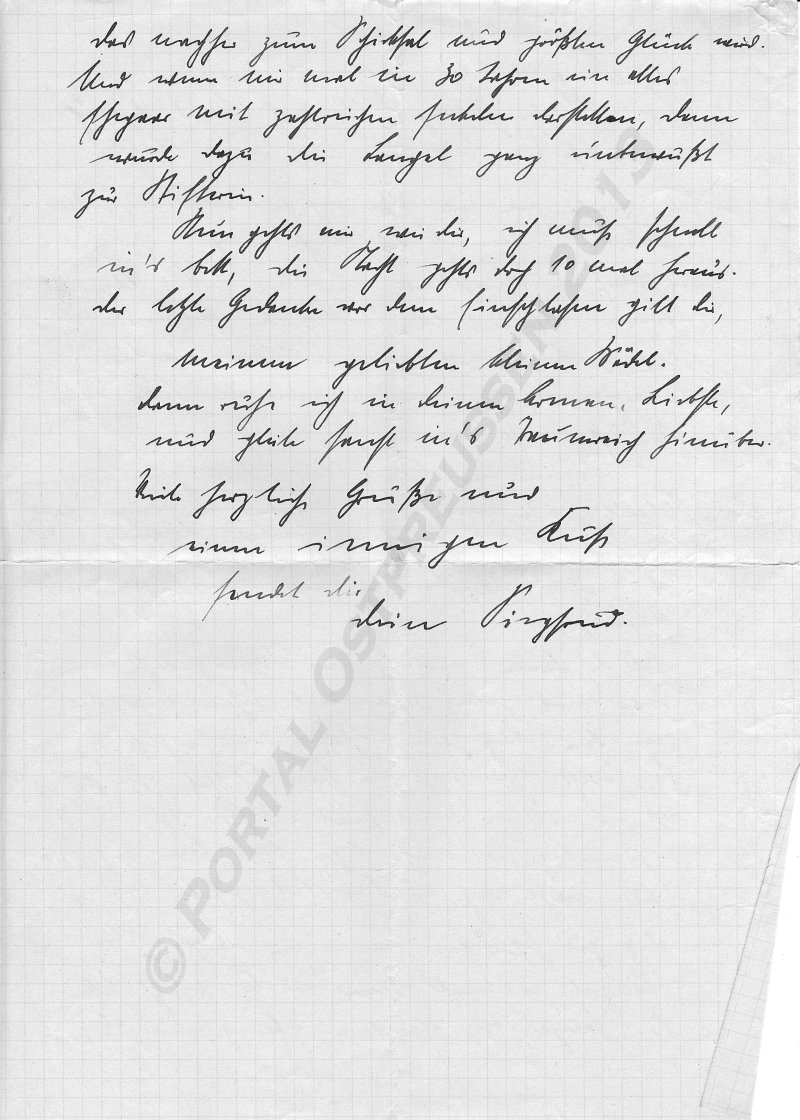 das nachher zum Schicksal und größten Glück wird.
Und wenn wir mal in 30 Jahren ein altes
Ehepaar mit zahlreichen Enkeln darstellen, dann
wurde dazu die Langel ganz unbewußt
zur Stifterin.
Nun gehts mir wie dir, ich muß schnell
in's Bett, die Nacht gehts doch 10 mal heraus.
Der letzte Gedanke vor dem Einschlafen gilt dir,
meinem geliebten kleinen Mädel.
Dann ruhe ich in deinen Armen, Liebste,
und gleite sanft in's Traumreich hinüber.
Viele herzliche Grüße und
einen innigen Kuß
sendet dir
dein Siegfried.
© PORTAL OSTPREUSSEN 2013